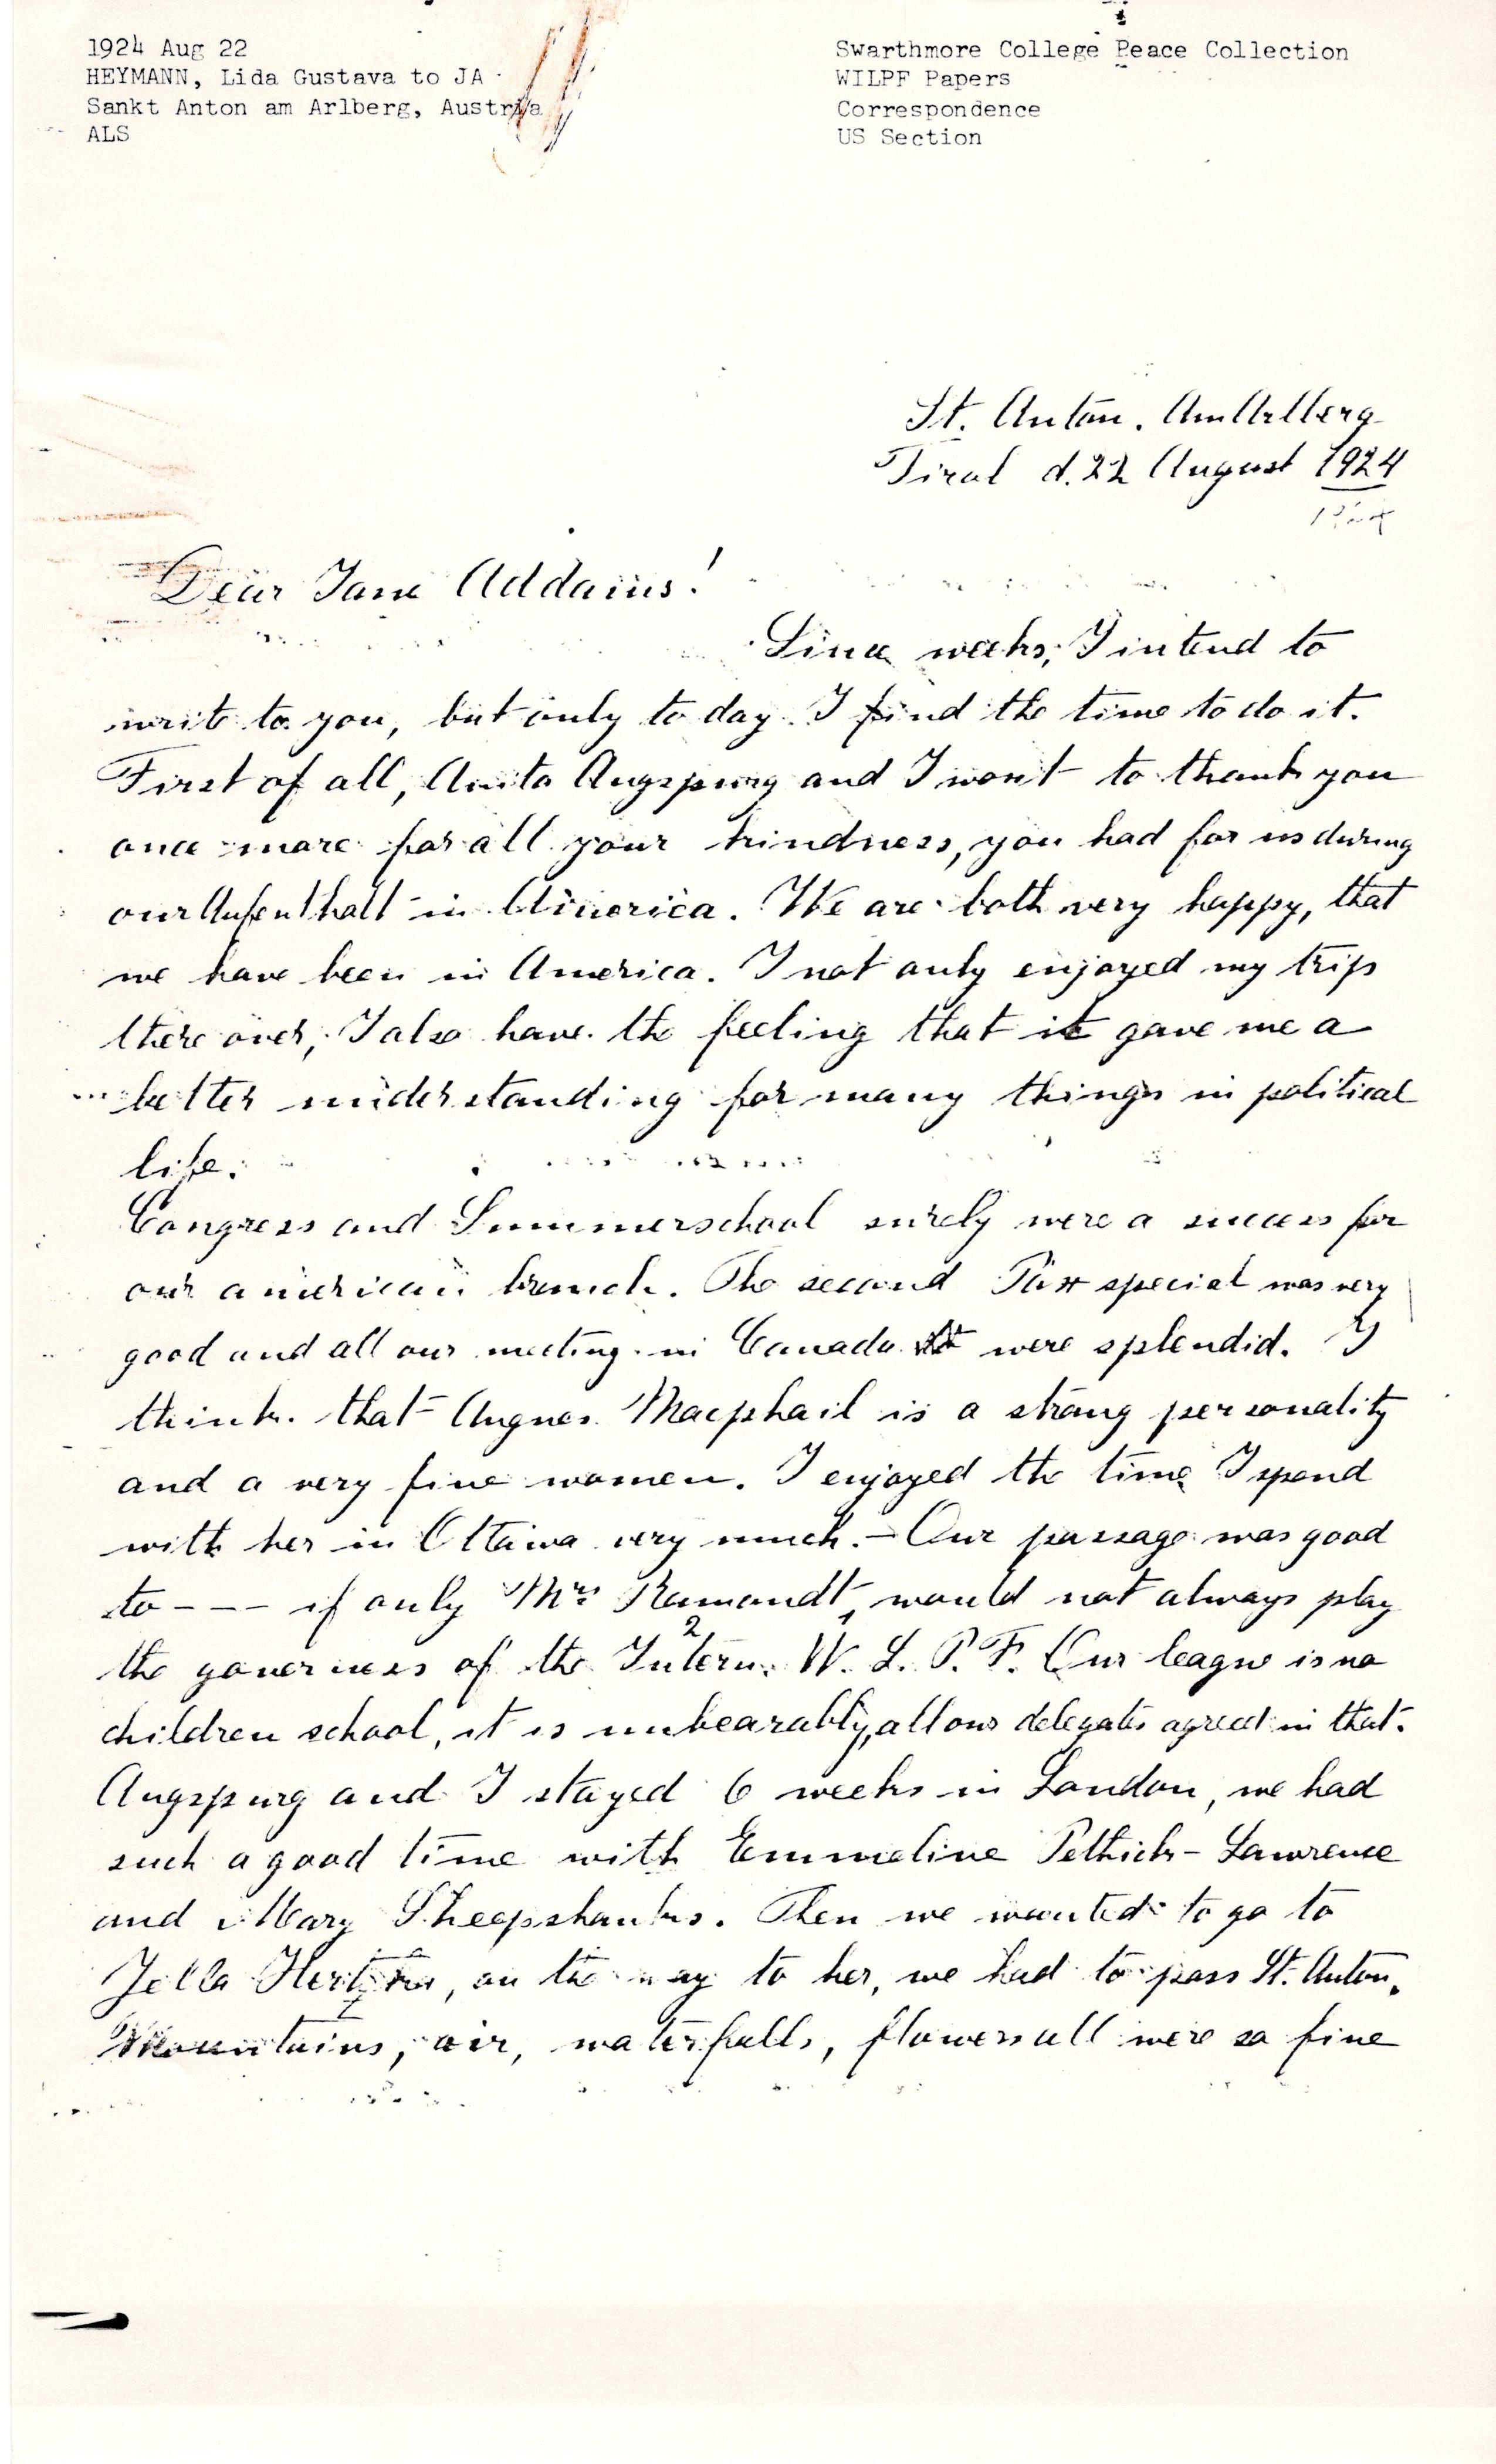 1924 Aug 22
HEYMANN, Lida Gustava to JA
Sankt Anton am Arlberg, Austria
ALS
Swarthmore College Peace Collection
WILPF Papers
Correspondence
US Section
St. Anton. Am Arlberg
Tirol d. 22 August 1924
Dear Jane Addams!
Since weeks, I intend to
write to you, but only to day I find the time to do it.
First of all, Anita Augspurg and I want to thank you
once more for all your kindness, you had for us during
our Aufenthalt in America. We are both very happy, that
we have been in America. I not only enjoyed my trip
there over, I also have the feeling that it gave me a
better understanding for many things in political
life.
Congress and Summerschool surely were a success for
our american branch. The second Pax special was very
good and all our meeting in Canada were splendid. I
think that Augnes Macphail is a strong personality
and a very fine women. I enjoyed the time I spend
with her in Ottawa very much. – Our passage was good
to - - - if only Mrs Ramondt, would not always play
the governess of the Intern. W. L. P. F. Our league is no
children school, it is unbearably, all our delegates agreed in that.
Augspurg and I stayed 6 weeks in London, we had
such a good time with Emmeline Pethick-Lawrence
and Mary Sheepshanks. Then we wanted to go to
Yella Hertzka, on the way to her, we had to pass St. Anton.
Mountains, air, waterfalls, flowers all were so fine